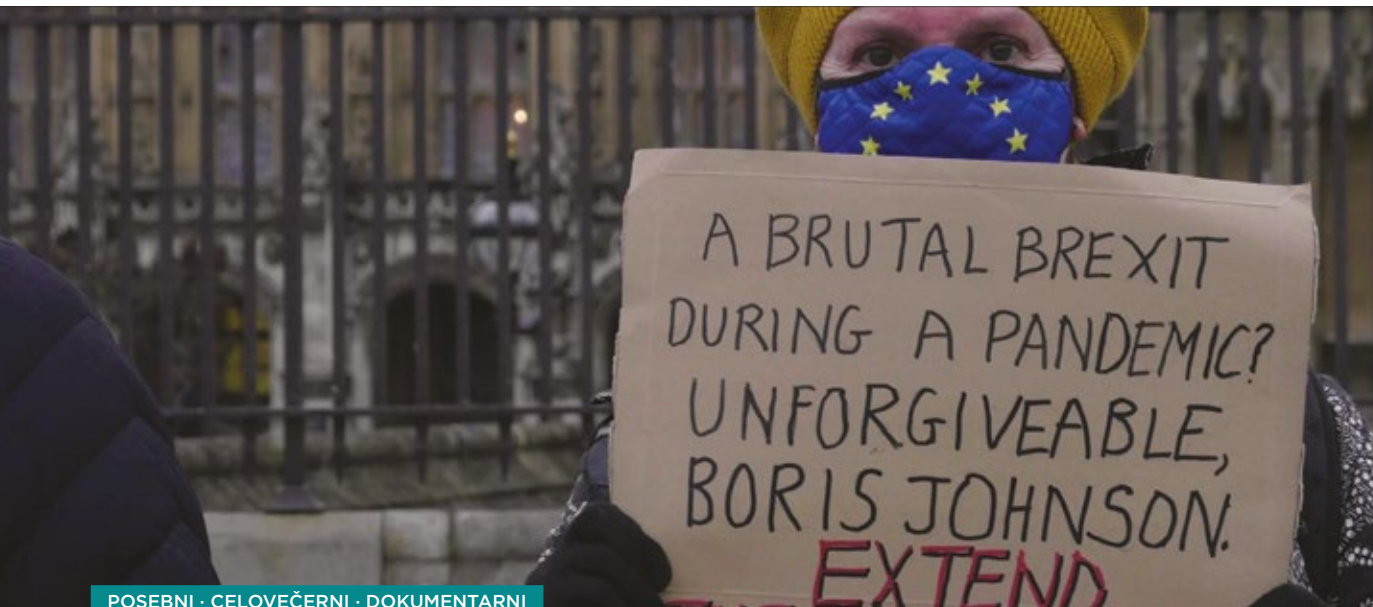 A BRUTAL BREXIT
DURING A PANDEMIC?
UNFORGIVEABLE,
BORIS JOHNSON.
EXTEND
POSEBNI · CELOVEČERNI · DOKUMENTARNI